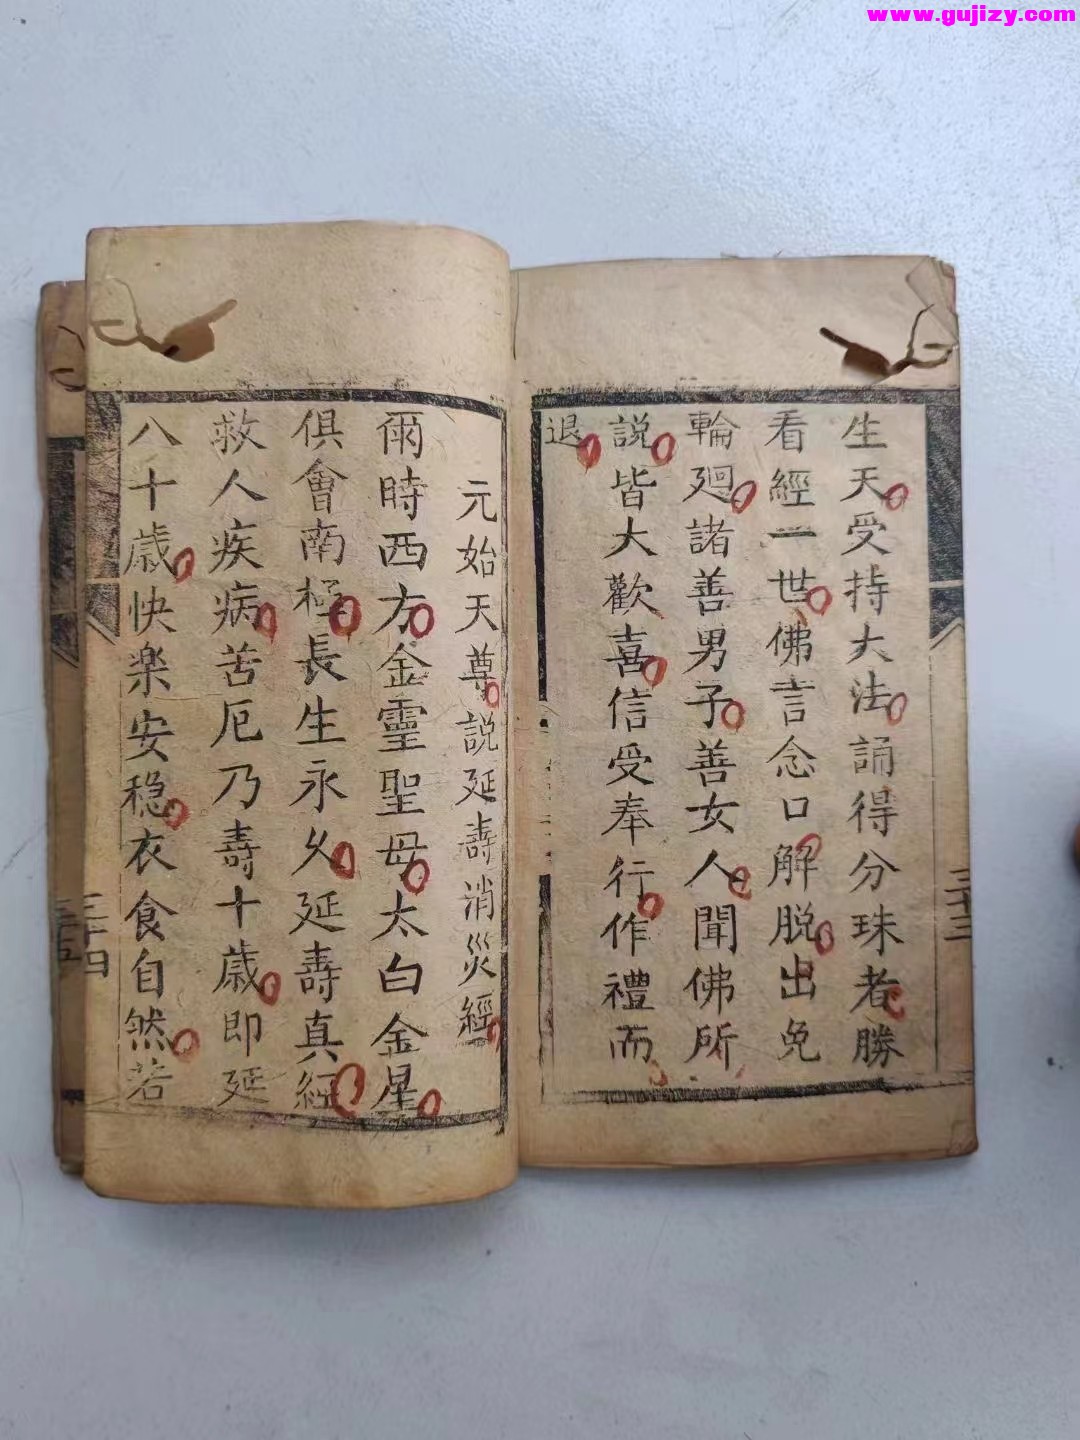 www.gujizy.com
生天受持大法誦得分珠者勝
看經一世佛言念口解脱出免
輪廻諸善男子善女人聞佛所
説皆大歡喜信受奉行作禮而
退
三十三
元始天尊説延壽消災經
爾時西方金靈聖母太白金星
俱會南極長生永久延壽真經
救人疾病苦厄乃壽十歳即延
八十歳快楽安穏衣食自然若
三十四
三十五